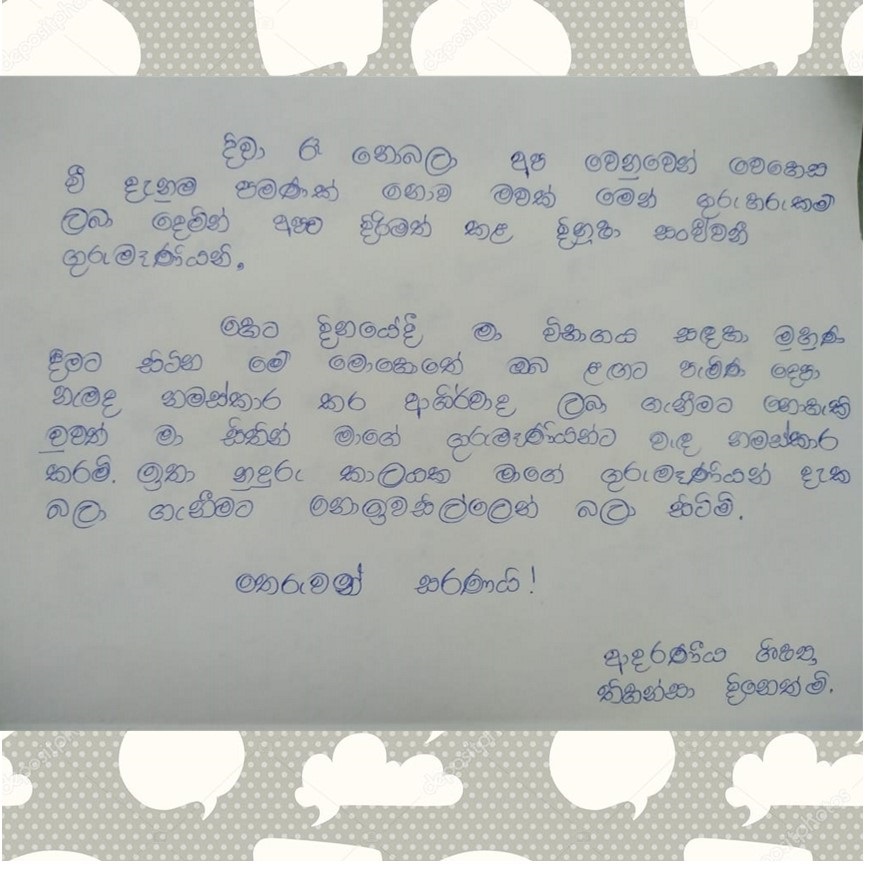 දිවා රෑ නොබලා අප වෙනුවෙන් වෙහෙස
වී දැනුම පමණක් නොව මවක් මෙන් ගුරුහරුකම්
ලබා දෙමින් අපව දිරිමත් කළ දිනූෂා සංජීවනී
ගුරුමෑණියනි,
හෙට දිනයේදී මා විභාගය සඳහා මුහුණ
දීමට සිටින මේ මොහොතේ ඔබ ළඟට පැමිණ දෙපා
නැමද නමස්කාර කර ආශිර්වාද ලබා ගැනීමට නොහැකි
වුවත් මා සිතින් මාගේ ගුරුමෑණියන්ට වැඳ නමස්කාර
කරමි. ඉතා නුදුරු කාලයක මාගේ ගුරුමෑණියන් දැක
බලා ගැනීමට නොඉවසිල්ලෙන් බලා සිටිමි.
තෙරුවන් සරණයි!
ආදරණීය ශිෂ්‍ය
තිහන්සා දිනෙත්මි.
depositphotos